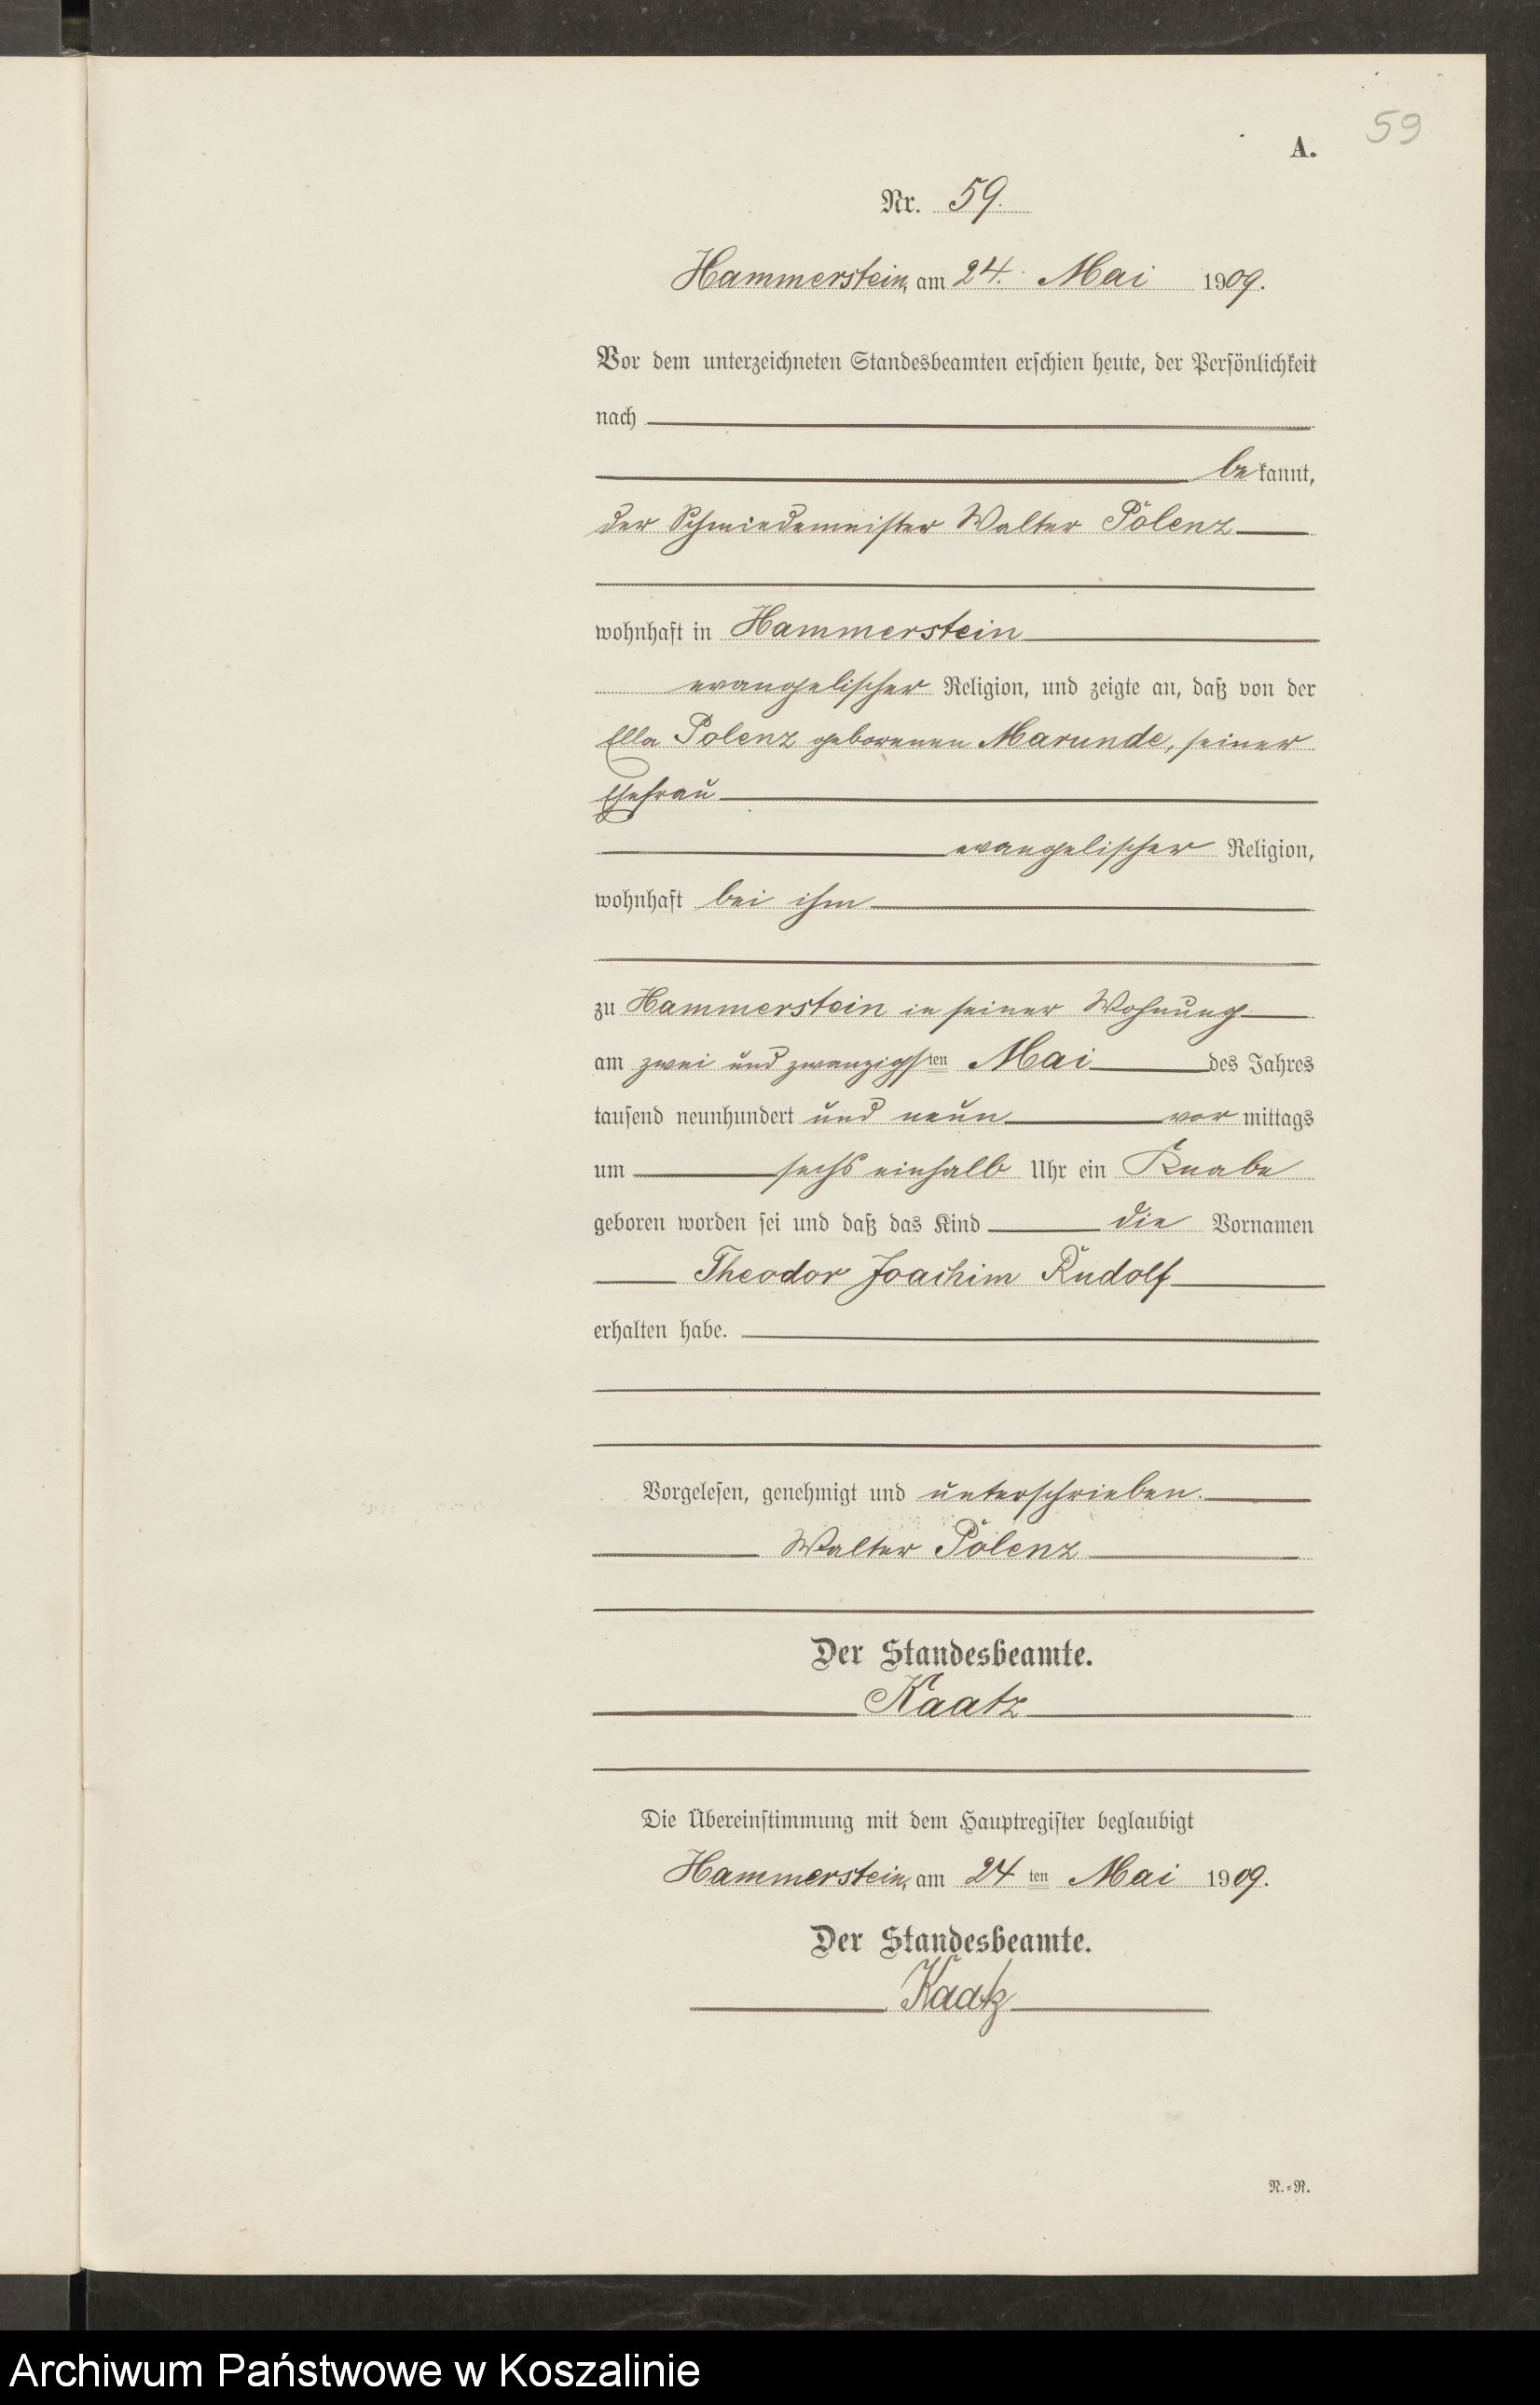 59
A.
Nr. 59.
Hammerstein, am 24. Mai 1909.
Vor dem unterzeichneten Standesbeamten erschien heute, der Persönlichkeit
nach
bekannt,
der Schmiedemeister Walter Polenz
wohnhaft in Hammerstein
evangelischer Religion, und zeigte an, daß von der
Ella Polenz geborenen Marunde, seiner
Ehefrau
evangelischer Religion,
wohnhaft bei ihm
zu Hammerstein in seiner Wohnung
am zwei und zwanzigsten Mai des Jahres
tausend neunhundert und neun vormittags
um sechs einhalb Uhr ein Knabe
geboren worden sei und daß das Kind die Vornamen
Theodor Joachim Rudolf
erhalten habe.
Vorgelesen, genehmigt und unterschrieben.
Walter Polenz
Der Standesbeamte.
Kaatz
Die Übereinstimmung mit dem Hauptregister beglaubigt
Hammerstein, am 24ten Mai 1909.
Der Standesbeamte.
Kaatz
N.=R.
Archiwum Państwowe w Koszalinie